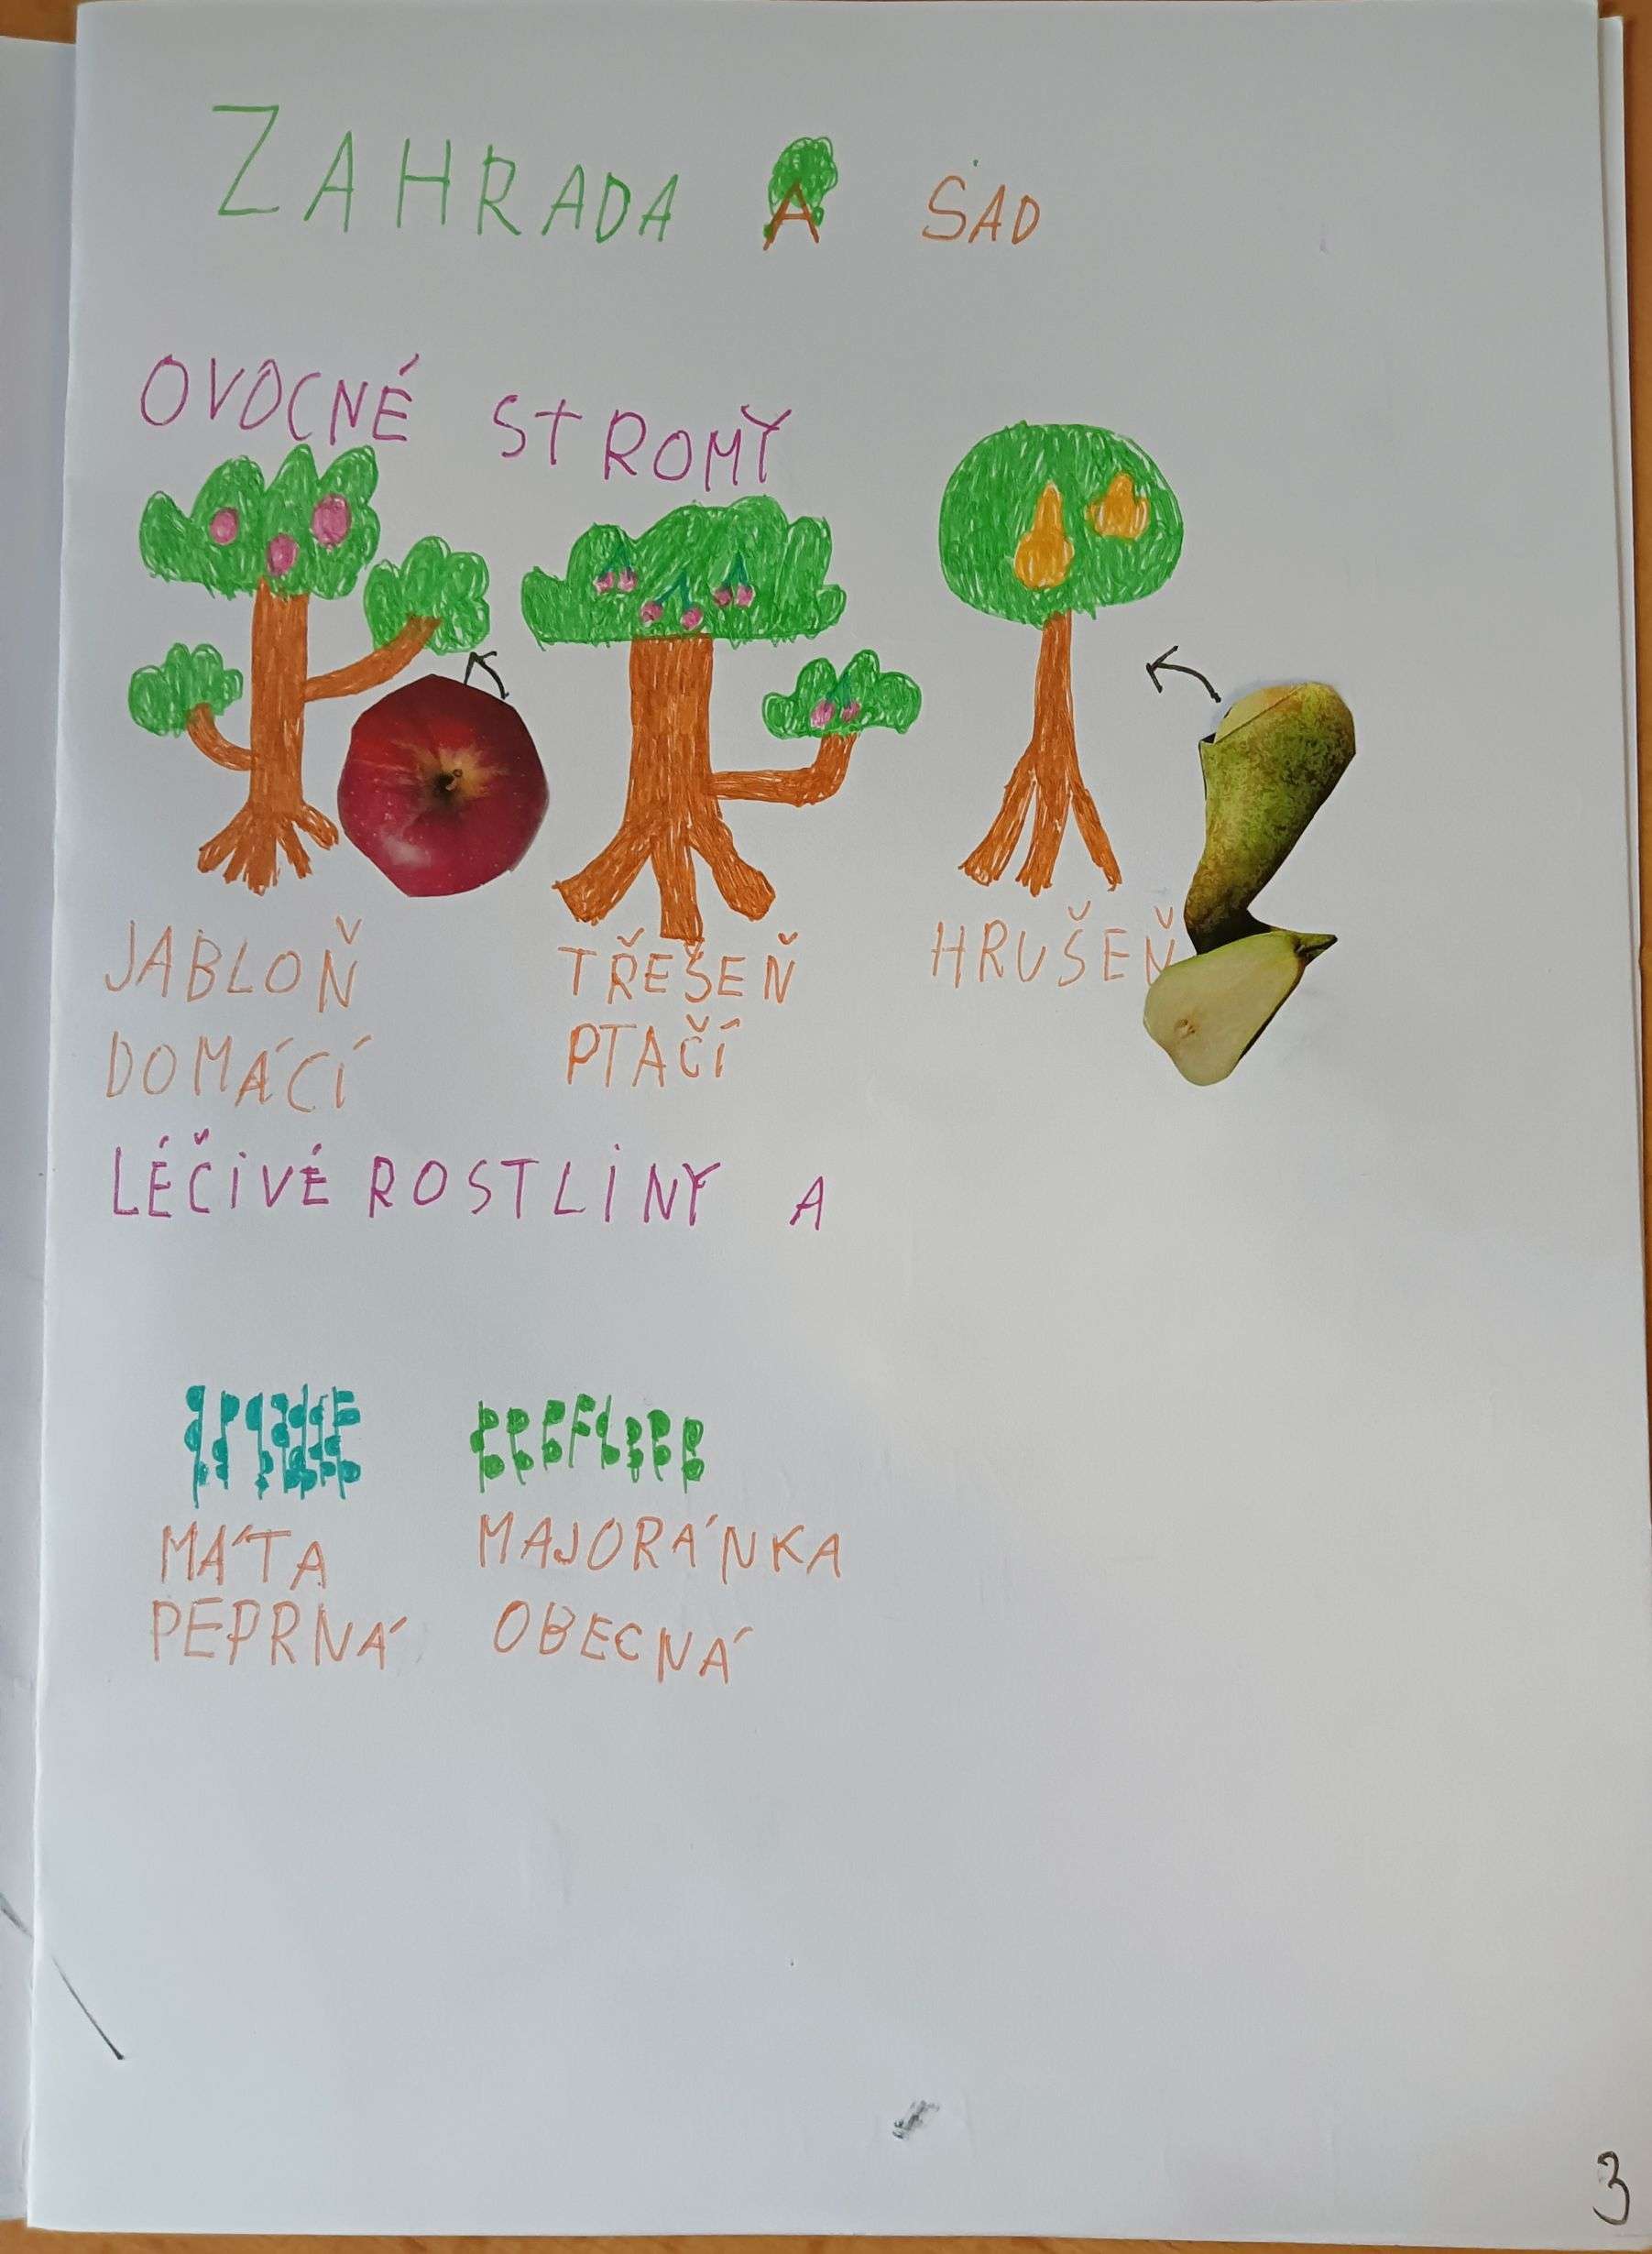 ZAHRADA A SAD
OVOCNÉ STROMY
JABLOŇ TŘEŠEŇ HRUŠEŇ
DOMÁCÍ PTAČÍ
LÉČIVÉ ROSTLINY A
MÁTA MAJORÁNKA
PEPRNÁ OBECNÁ
3